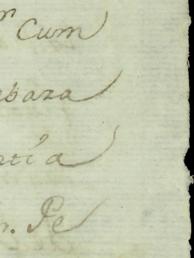 r Cum
baza
tía
n. Pe